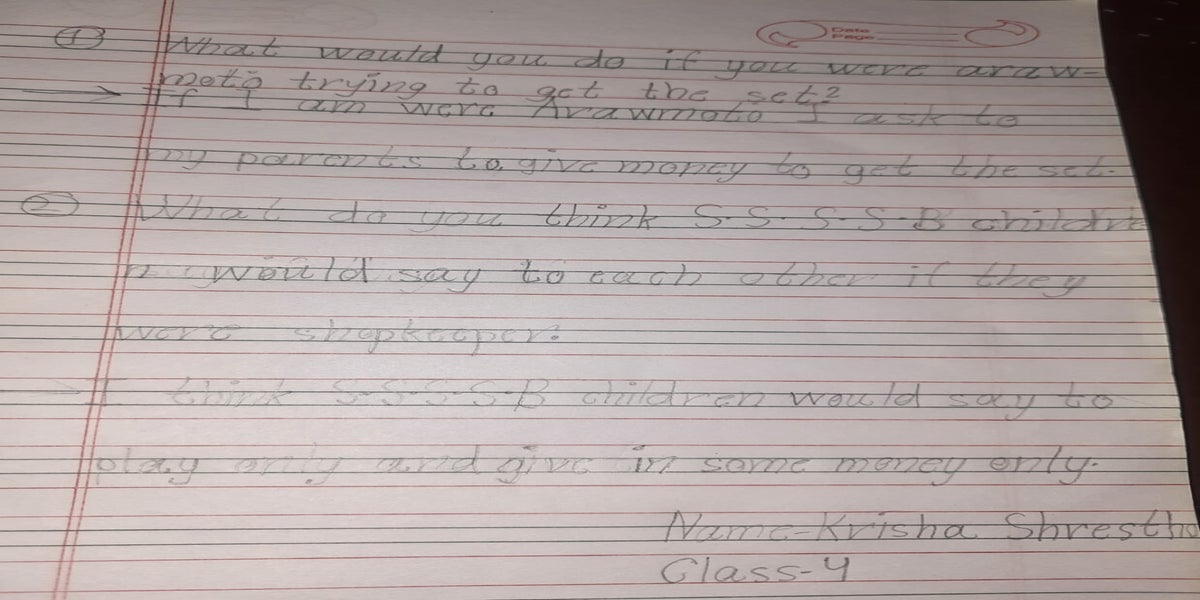 Date
Page
① What would you do if you were araw-
moto trying to get the set?
→ If I am were Arawmoto I ask to
my parents to give money to get the set.
② What do you think S-S-S-S-B childre
n would say to each other if they
were shopkeeper.
→ I think S-S-S-S-B children would say to
play only and give in some money only.
Name-Krisha Shrestha
Class-4